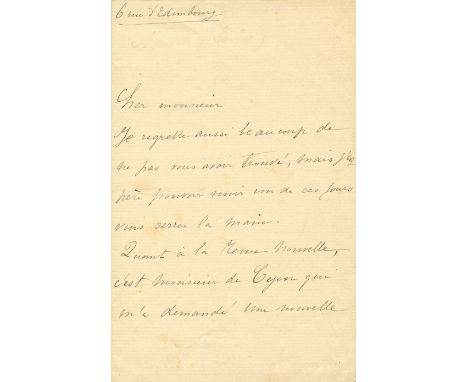 6 rue d'Edimbourg
Cher monsieur
Je regrette aussi beaucoup de
ne pas vous avoir trouvé, mais j'es
père pouvoir venir un de ces jours
vous serrer la main.
Quant à la Revue Nouvelle,
c'est monsieur de Cyon qui
m'a demandé une nouvelle